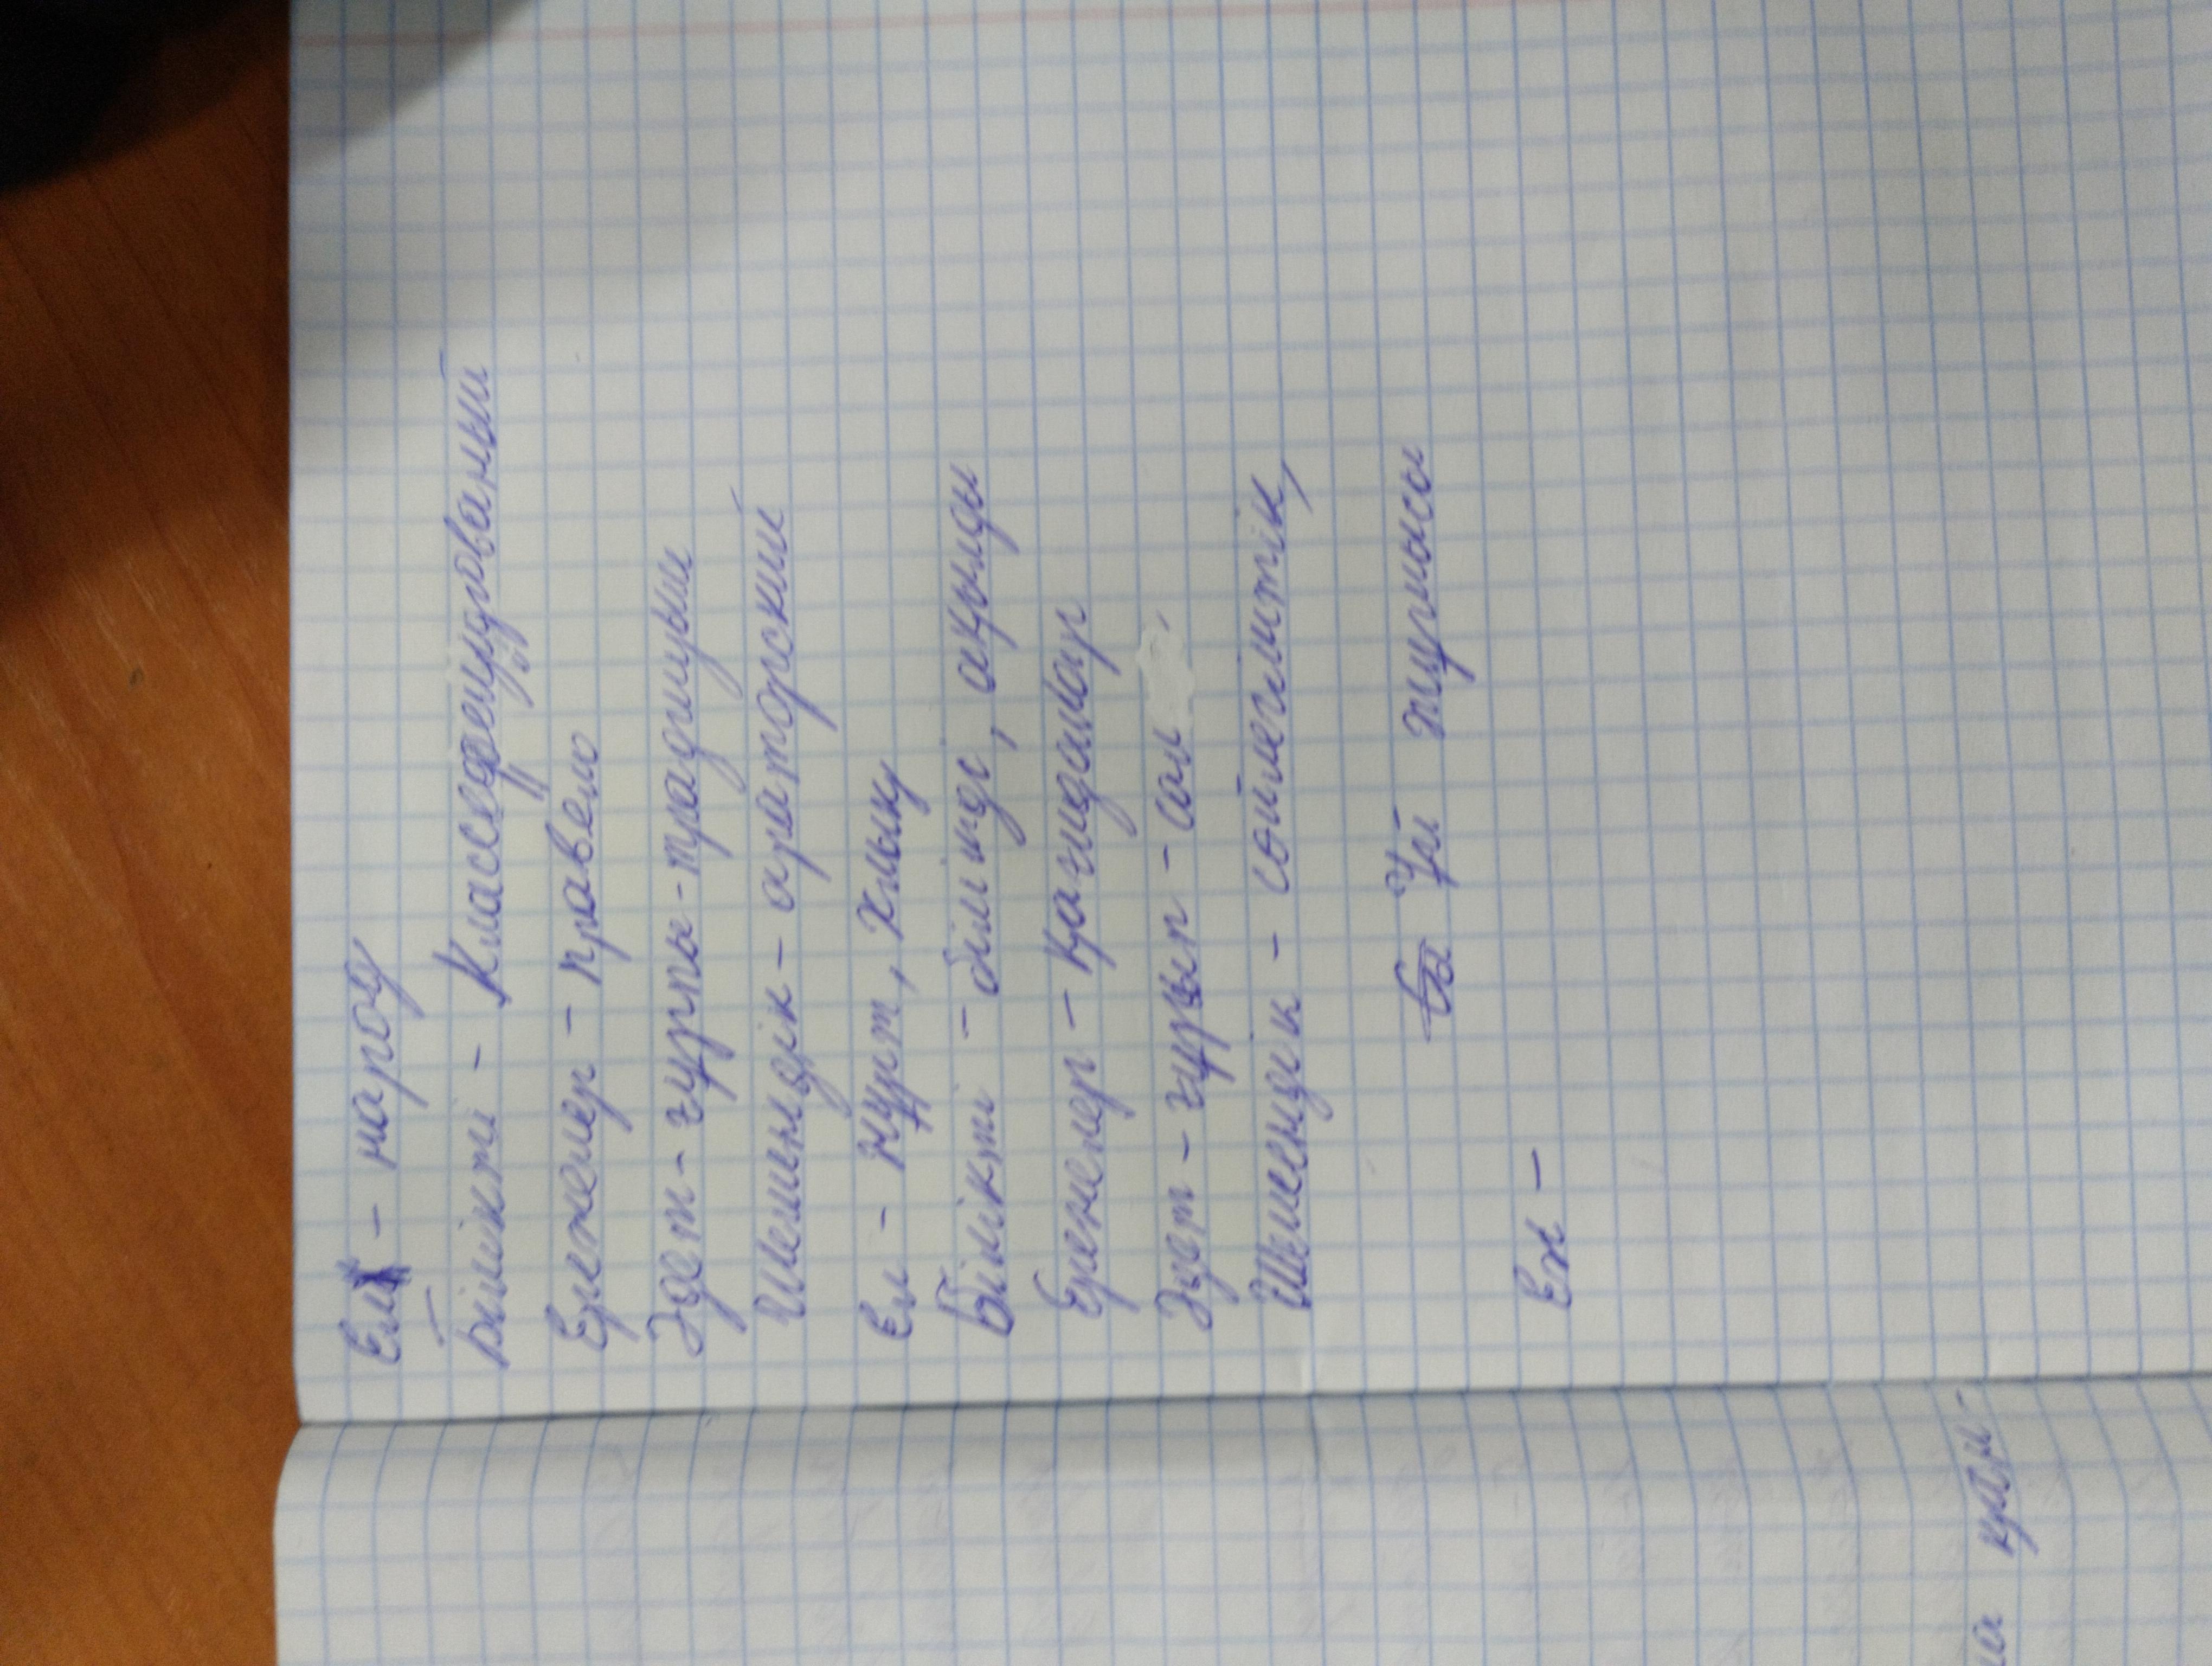 Ел - народ
Білікті - Классефецированый
Ережелер - правело
Әдет - ғұрпы - традицыи
Шешендік - араторский
Ел - жұрт, Халық
Білікті - білімді, ақылды
Ережелер - Қағидалар
Әдет - ғұрып - сал
Шешендік - сөйлегіштік,
Үй жұмысы
Ел -